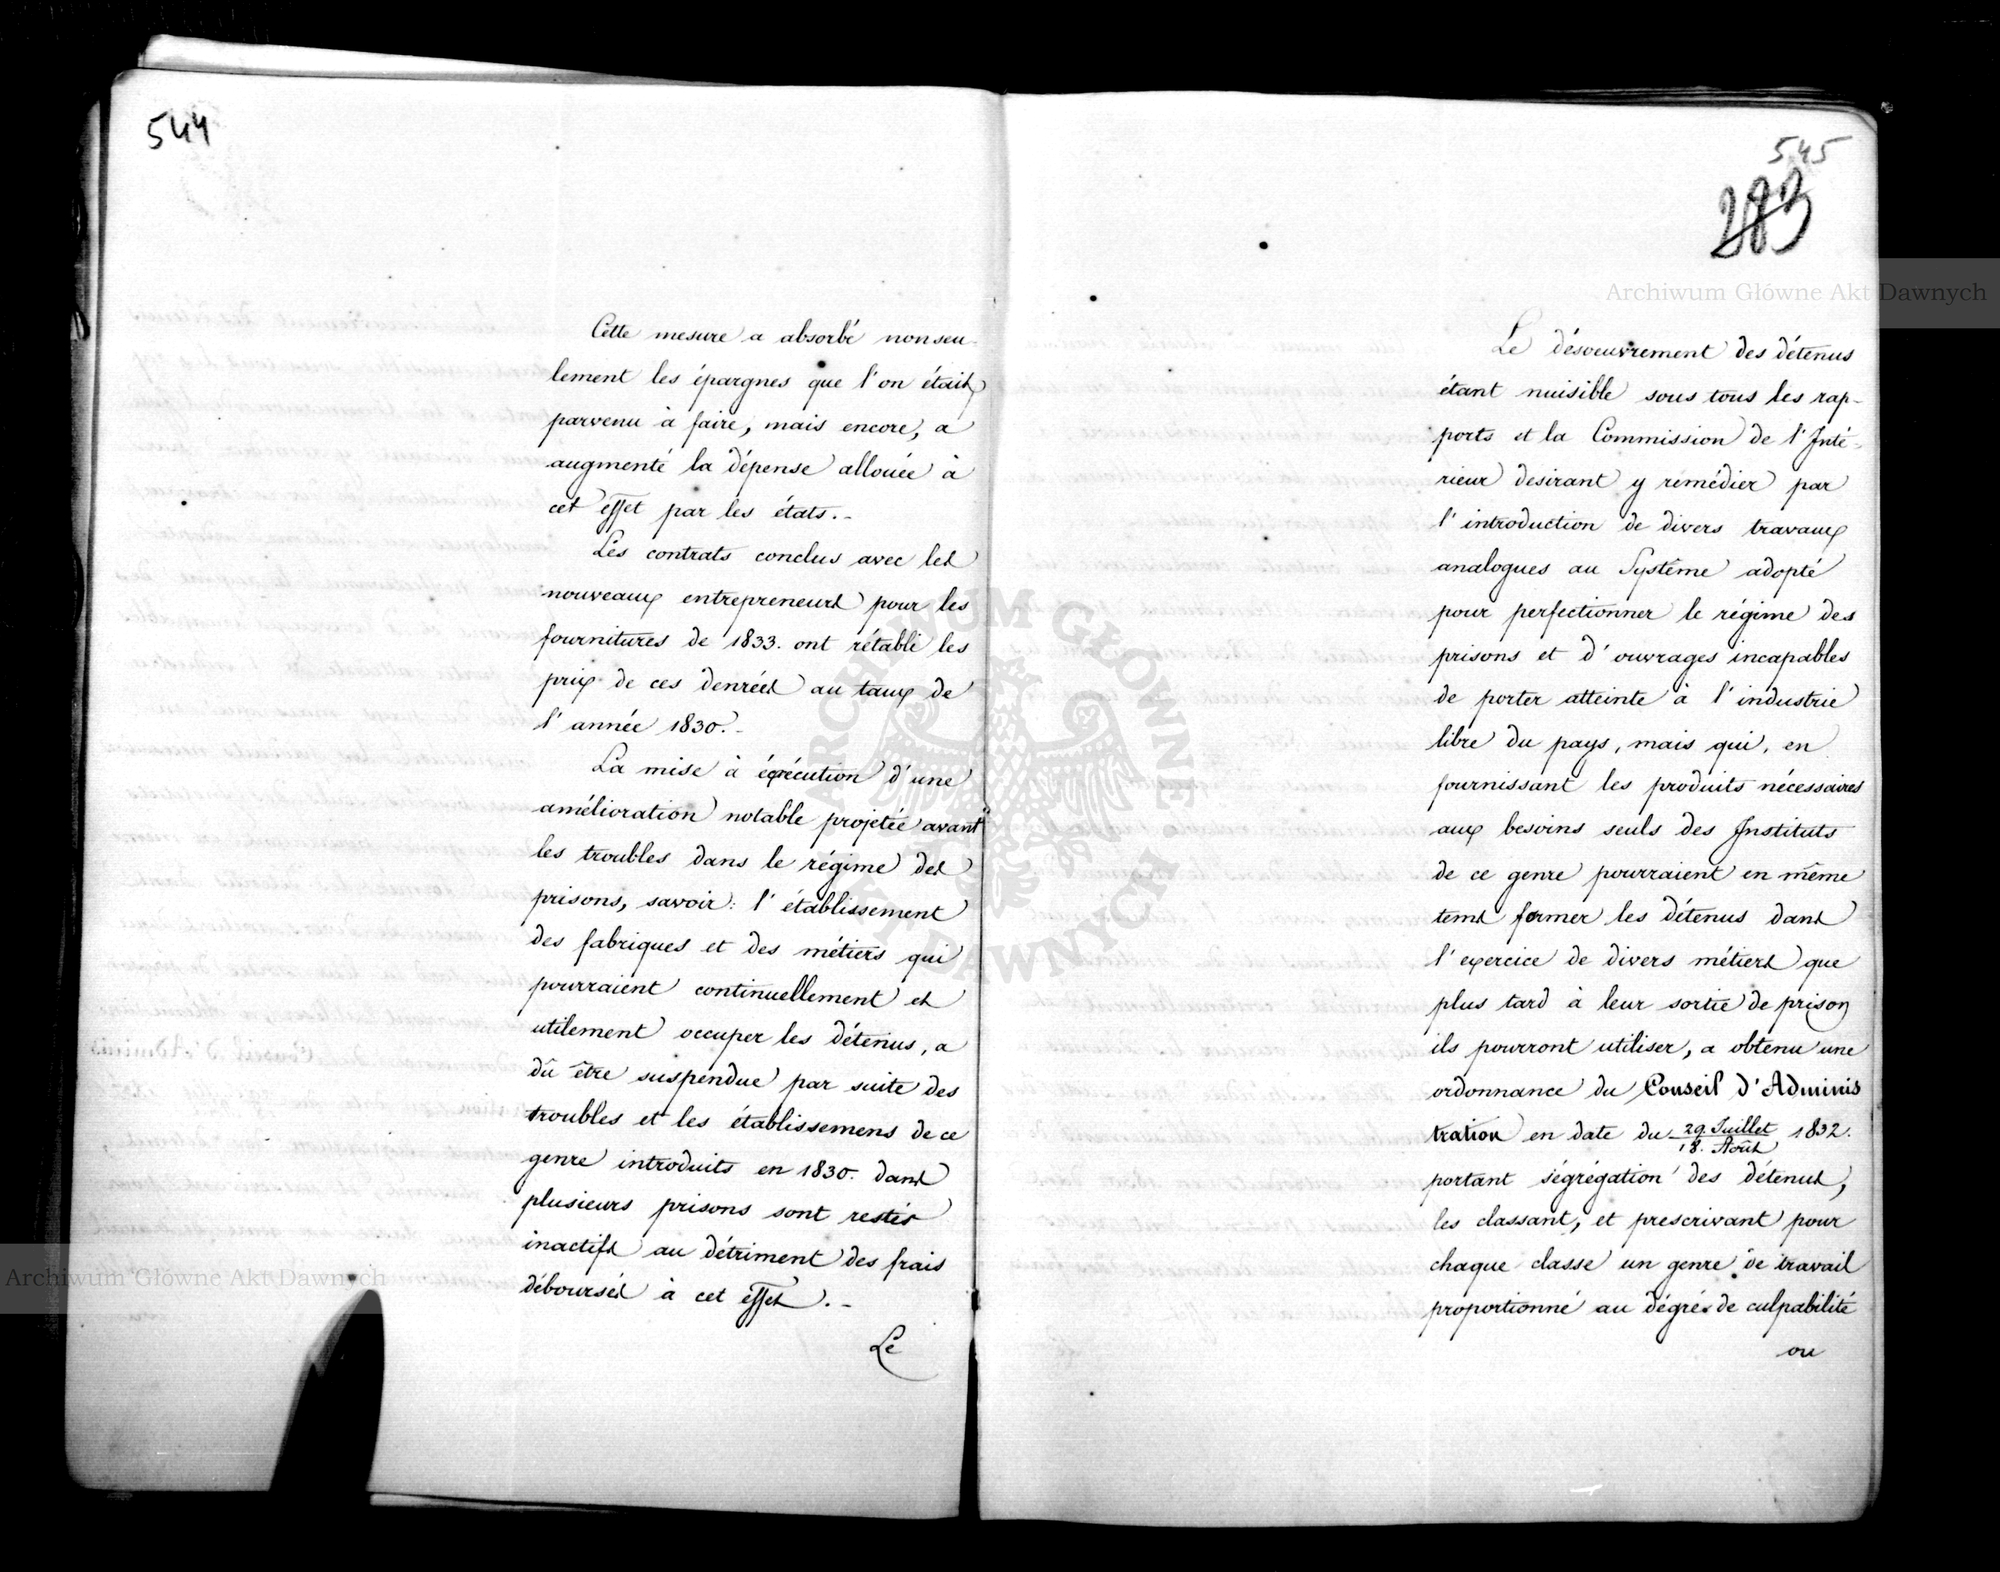 544
Cette mesure a absorbé nonseu-
lement les épargnes que l'on était
parvenu à faire, mais encore, a
augmenté la dépense allouée à
cet effet par les états.-
Les contrats conclus avec les
nouveaux entrepreneurs pour les
fournitures de 1833. ont rétabli les
prix de ces denrées au taux de
l'année 1830.-
La mise à éxécution d'une
amélioration notable projetée avant
les troubles dans le régime des
prisons, savoir: l'établissement
des fabriques et des métiers qui
pourraient continuellement et
utilement occuper les détenus, a
dû être suspendue par suite des
troubles et les établissemens de ce
genre introduits en 1830. dans
plusieurs prisons sont restés
inactifs au détriment des frais
déboursés à cet effet.-
Le
545
283
Le désoeuvrement des détenus
étant nuisible sous tous les rap-
ports et la Commission de l'Inté-
rieur desirant y remédier par
l'introduction de divers travaux
analogues au Systême adopté
pour perfectionner le régime des
prisons et d'ouvrages incapables
de porter atteinte à l'industrie
libre du pays, mais qui, en
fournissant les produits nécessaires
aux besoins seuls des Instituts
de ce genre pourraient en même
tems former les détenus dans
l'exercice de divers métiers que
plus tard à leur sortie de prison
ils pourront utiliser, a obtenu une
ordonnance du Conseil d'Adminis
tration en date du 29. Juillet 1832.
18. Août
portant ségrégation des détenus,
les classant, et prescrivant pour
chaque classe un genre de travail
proportionné au dégrés de culpabilité
ou
Archiwum Główne Akt Dawnych
Archiwum Główne Akt Dawnych
ARCHIWUM GŁÓWNE AKT DAWNYCH